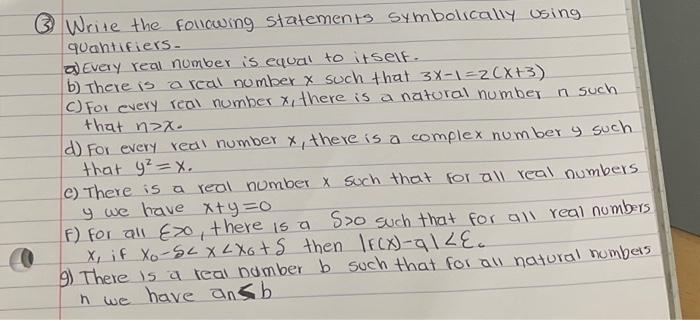 ③ Write the following statements symbolically using
quantifiers.
a) Every real number is equal to itself.
b) There is a real number x such that 3x-1=2(x+3)
c) For every real number x, there is a natural number n such
that n>x.
d) For every real number x, there is a complex number y such
that y²=x.
e) There is a real number x such that for all real numbers
y we have x+y=0
F) for all ε>0, there is a δ>0 such that for all real numbers
x, if x₀-δ< x<x₀+δ then |f(x)-q|<ε.
g) There is a real number b such that for all natural numbers
n we have an≤b